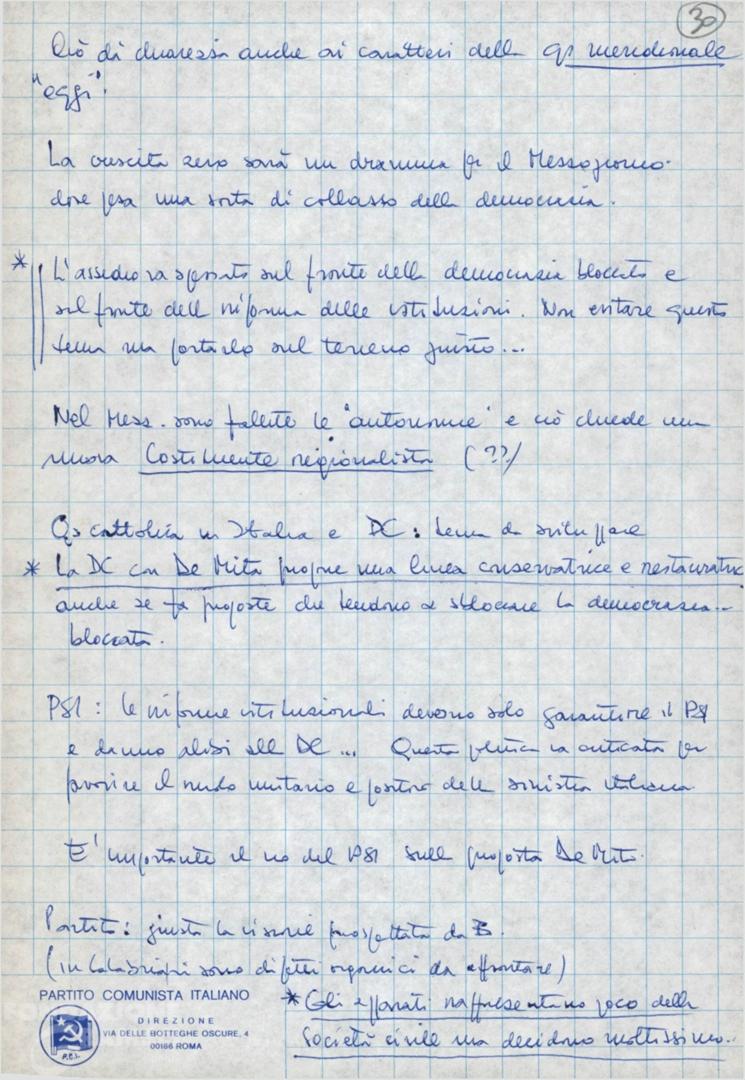 30
Ciò dà chiarezza anche ai caratteri della qs meridionale
"oggi".
La crescita zero sarà un dramma per il Mezzogiorno
dove pesa una sorta di collasso della democrazia.
* L'assedio va spostato sul fronte della democrazia bloccata e
sul fronte della riforma delle istituzioni. Non evitare questo
tema ma portarlo sul terreno giusto...
Nel Mezz. sono fallite le "autonomie" e ciò chiede una
nuova Costituente regionalista (??)
Qs cattolica in Italia e DC: tema da sviluppare
* La DC con De Mita propone una linea conservatrice e restauratrice
anche se fa proposte che tendono a sbloccare la democrazia...
bloccata.
PSI: le riforme istituzionali devono solo garantire il PSI
e danno alibi alla DC... Questa politica va criticata per
favorire il nuovo unitario e positivo della sinistra italiana
E' importante il no del PSI sulla proposta De Mita.
Partito: giusta la visione prospettata da B.
(in Calabria vi sono difetti organici da affrontare)
* Gli apparati rappresentano poco della
società civile ma decidono moltissimo...
PARTITO COMUNISTA ITALIANO
DIREZIONE
VIA DELLE BOTTEGHE OSCURE, 4
00186 ROMA
P.C.I.